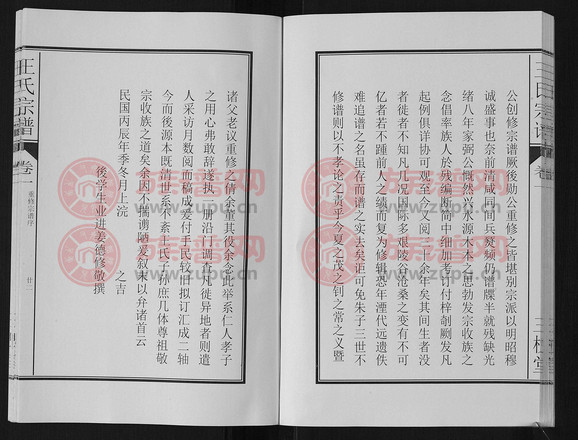 公创修宗谱厥後勋公重修之皆堪别宗派以明昭穆
诚盛事也奈前清咸同间兵燹频仍谱牒半就残缺光
绪八年家弼公慨然兴水源木本之思勃发宗收族之
念倡率族人於残编断简中细加考订付梓剞劂发凡
起例俱详协可观至今又阅二十余年矣其间生者没
者徙者不知凡几况国际多艰陵谷沧桑之变有不可
亿者若不踵前人之绩而复为修辑恐年湮代远遗佚
难追谱之名虽存而谱之实去矣讵可免朱子三世不
修谱则以不孝论之责乎今夏之茂之钊之常之义暨
诸父老议重修之倩余董其役余念此举系仁人孝子
之用心弗敢辞遂执一册沿门调查凡徙异地者则遣
人采访月数阅而稿成爰付手民较旧拟订汇成二轴
今而後源本既清世系不紊王氏子孙庶几体尊祖敬
宗收族之道矣余因不揣谫陋爰叙末以弁诸首云
民国丙辰年季冬月上浣　之吉
後学生业进姜德修敬撰
王氏宗谱
卷一
重修宗谱序
廿三
王氏宗谱
卷一
三槐堂
族谱网
www.zupu.cn